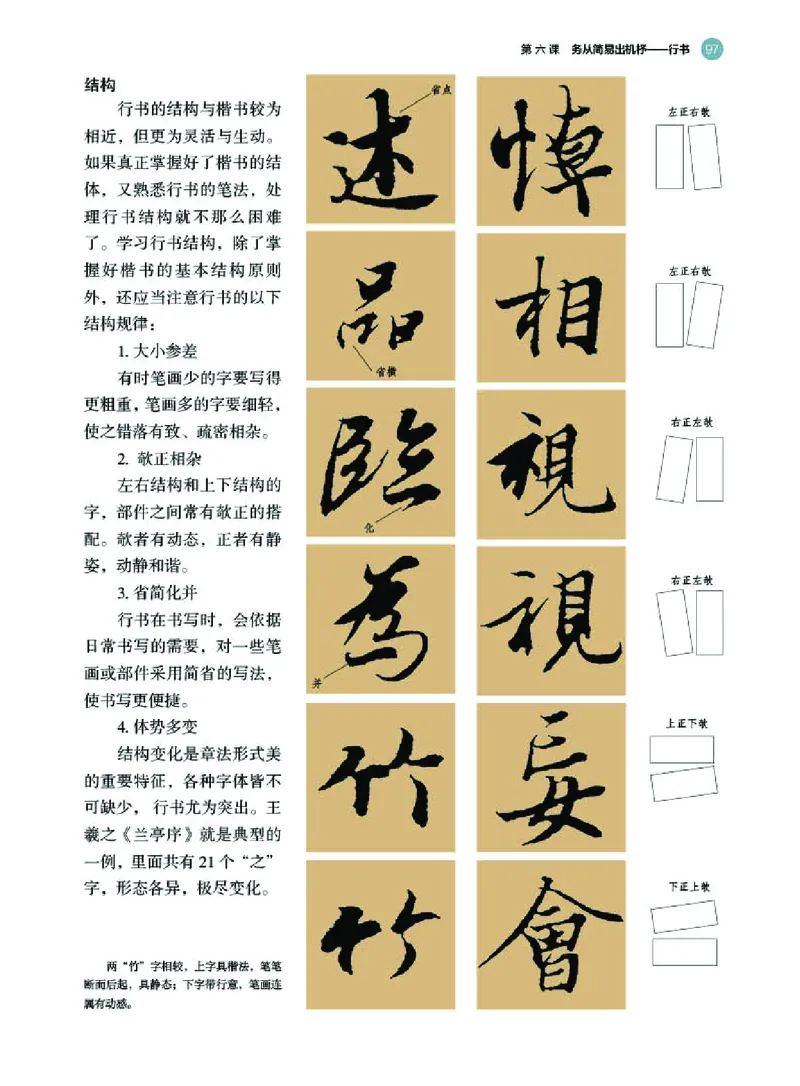 第六课 务从简易出机杼——行书 97
结构
行书的结构与楷书较为
相近，但更为灵活与生动。
如果真正掌握好了楷书的结
体，又熟悉行书的笔法，处
理行书结构就不那么困难
了。学习行书结构，除了掌
握好楷书的基本结构原则
外，还应当注意行书的以下
结构规律：
1. 大小参差
有时笔画少的字要写得
更粗重，笔画多的字要细轻，
使之错落有致、疏密相杂。
2. 欹正相杂
左右结构和上下结构的
字，部件之间常有欹正的搭
配。欹者有动态，正者有静
姿，动静和谐。
3. 省简化并
行书在书写时，会依据
日常书写的需要，对一些笔
画或部件采用简省的写法，
使书写更便捷。
4. 体势多变
结构变化是章法形式美
的重要特征，各种字体皆不
可缺少， 行书尤为突出。王
羲之《兰亭序》就是典型的
一例，里面共有 21 个“之”
字，形态各异，极尽变化。
两“竹”字相较，上字具楷法，笔笔
断而后起，具静态；下字带行意，笔画连
属有动感。
述
省点
品
省横
臨
化
為
并
竹
竹
悼
相
視
視
妄
會
左正右欹
左正右欹
右正左欹
右正左欹
上正下欹
下正上欹